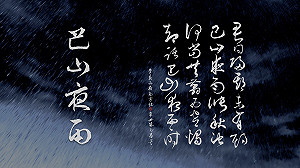 君問歸期未有期
巴山夜雨漲秋池
何當共剪西窗燭
却話巴山夜雨時
巴山夜雨